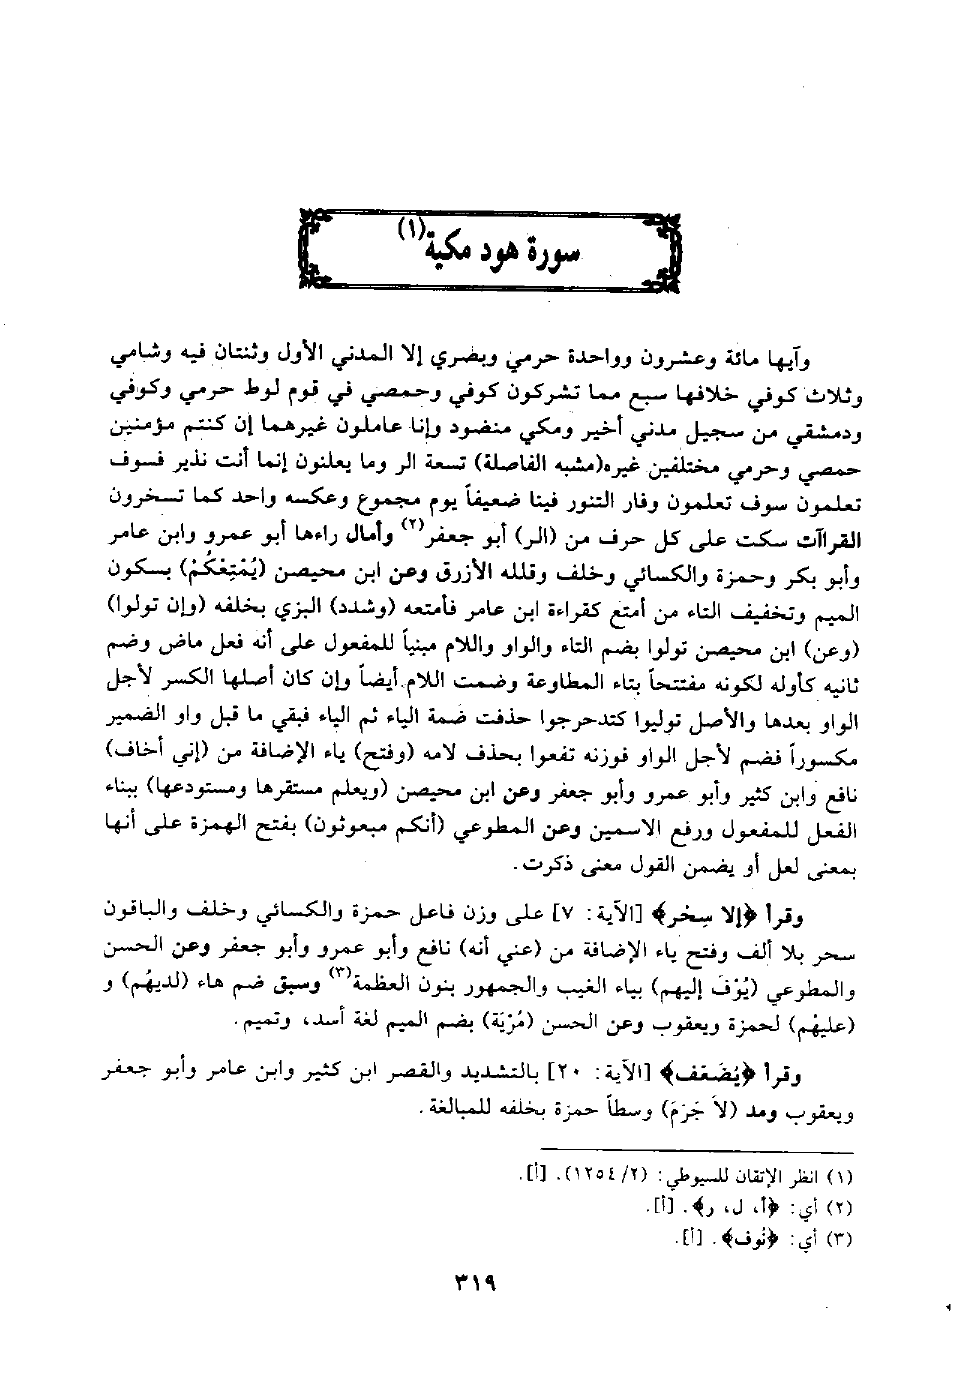 سورة هود مكية(١)
وآيها مائة وعشرون وواحدة حرمي وبضري إلا المدني الأول وثنتان فيه وشامي
وثلاث كوفي خلافها سبع مما تشركون كوفي وحمصي في قوم لوط حرمي وكوفي
ودمشقي من سجيل مدني أخير ومكي منضود وإنا عاملون غيرهما إن كنتم مؤمنين
حمصي وحرمي مختلفين غيره(مشبه الفاصلة) تسعة الر وما يعلنون إنما أنت نذير فسوف
تعلمون سوف تعلمون وفار التنور فينا ضعيفاً يوم مجموع وعكسه واحد كما تسخرون
القراآت سكت على كل حرف من (الر) أبو جعفر(٢) وأمال راءها أبو عمرو وابن عامر
وأبو بكر وحمزة والكسائي وخلف وقلله الأزرق وعن ابن محيصن (يُمْتِعْكُمْ) بسكون
الميم وتخفيف التاء من أمتع كقراءة ابن عامر فأمتعه (وشدد) البزي بخلفه (وإن تولوا)
(وعن) ابن محيصن تولوا بضم التاء والواو واللام مبنياً للمفعول على أنه فعل ماض وضم
ثانيه كأوله لكونه مفتتحاً بتاء المطاوعة وضمت اللام أيضاً وإن كان أصلها الكسر لأجل
الواو بعدها والأصل توليوا كتدحرجوا حذفت ضمة الياء ثم الياء فبقي ما قبل واو الضمير
مكسوراً فضم لأجل الواو فوزنه تفعوا بحذف لامه (وفتح) ياء الإضافة من (إني أخاف)
نافع وابن كثير وأبو عمرو وأبو جعفر وعن ابن محيصن (ويعلم مستقرها ومستودعها) ببناء
الفعل للمفعول ورفع الاسمين وعن المطوعي (أنكم مبعوثون) بفتح الهمزة على أنها
بمعنى لعل أو يضمن القول معنى ذكرت.
وقرأ ﴿إلا سٰحر﴾ [الآية: ٧] على وزن فاعل حمزة والكسائي وخلف والباقون
سحر بلا ألف وفتح ياء الإضافة من (عني أنه) نافع وأبو عمرو وأبو جعفر وعن الحسن
والمطوعي (يُوَفّ إليهم) بياء الغيب والجمهور بنون العظمة(٣) وسبق ضم هاء (لديهُم) و
(عليهُم) لحمزة ويعقوب وعن الحسن (مُرْيَة) بضم الميم لغة أسد، وتميم.
وقرأ ﴿يُضَعّف﴾ [الآية: ٢٠] بالتشديد والقصر ابن كثير وابن عامر وأبو جعفر
ويعقوب ومد (لاَ جَرَمَ) وسطاً حمزة بخلفه للمبالغة.
(١) انظر الإتقان للسيوطي: (٢/ ١٢٥٤). [أ].
(٢) أي: ﴿أ، ل، ر﴾. [أ].
(٣) أي: ﴿نُوف﴾. [أ].
٣١٩